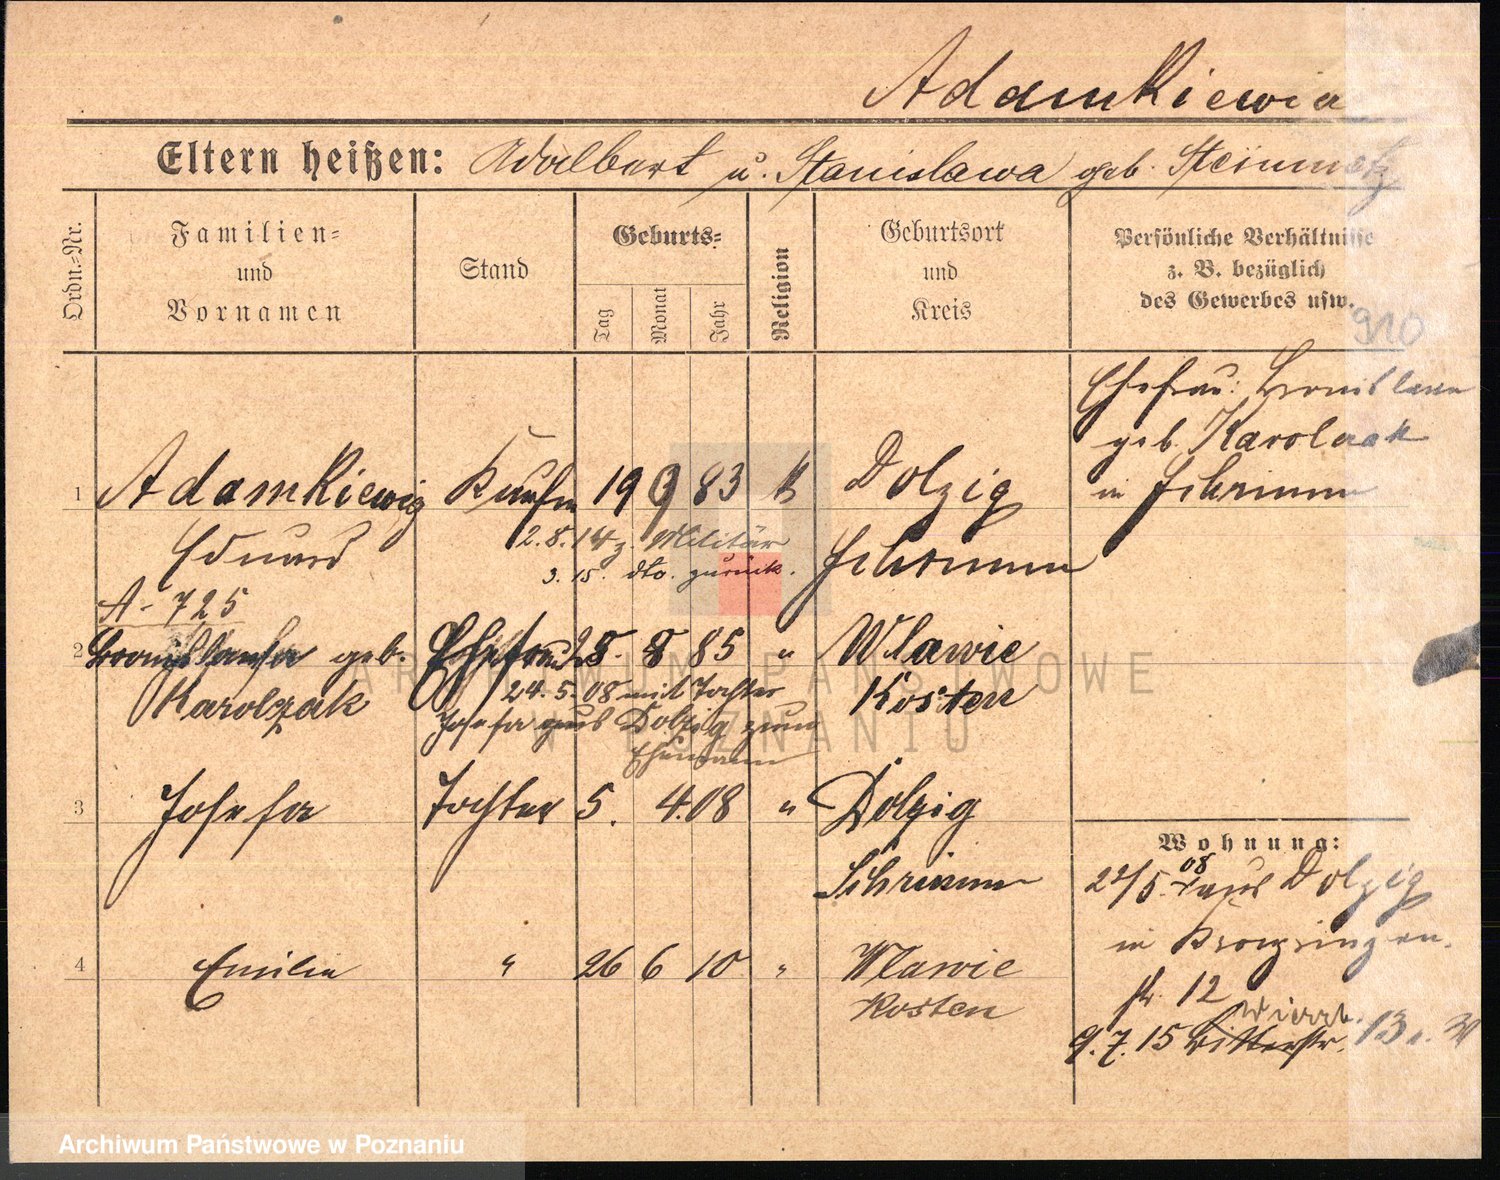 Adamkiewicz
Eltern heißen: Adalbert u. Stanislawa geb. Steinmetz
Ordn.=Nr.
Familien=
und
Vornamen
Stand
Geburts=
Tag
Monat
Jahr
Religion
Geburtsort
und
Kreis
Persönliche Verhältnisse
z. B. bezüglich
des Gewerbes usw.
910
Ehefrau: Bronislawa
geb. Karolczak
in Schrimm
1 Adamkiewicz Kaufm 19 9 83 k Dolzig
Eduard
2.8.14 z. Militär
3. 15. dto. zurück.
Schrimm
A-725
2 Bronislawa geb. Ehefrau 28. 8 85 " Wlawie
Karolczak
24.5.08 mit Tochter
Josefa aus Dolzig zum
Ehemann
Kosten
3 Josefa Tochter 5. 4. 08 " Dolzig
Schrimm
4 Emilie " 26 6 10 " Wlawie
Kosten
Wohnung:
22/5. 08 aus Dolzig
in
str. 12
9.7.15 Ritterstr. 13
ARCHIWUM PAŃSTWOWE
W POZNANIU
Archiwum Państwowe w Poznaniu